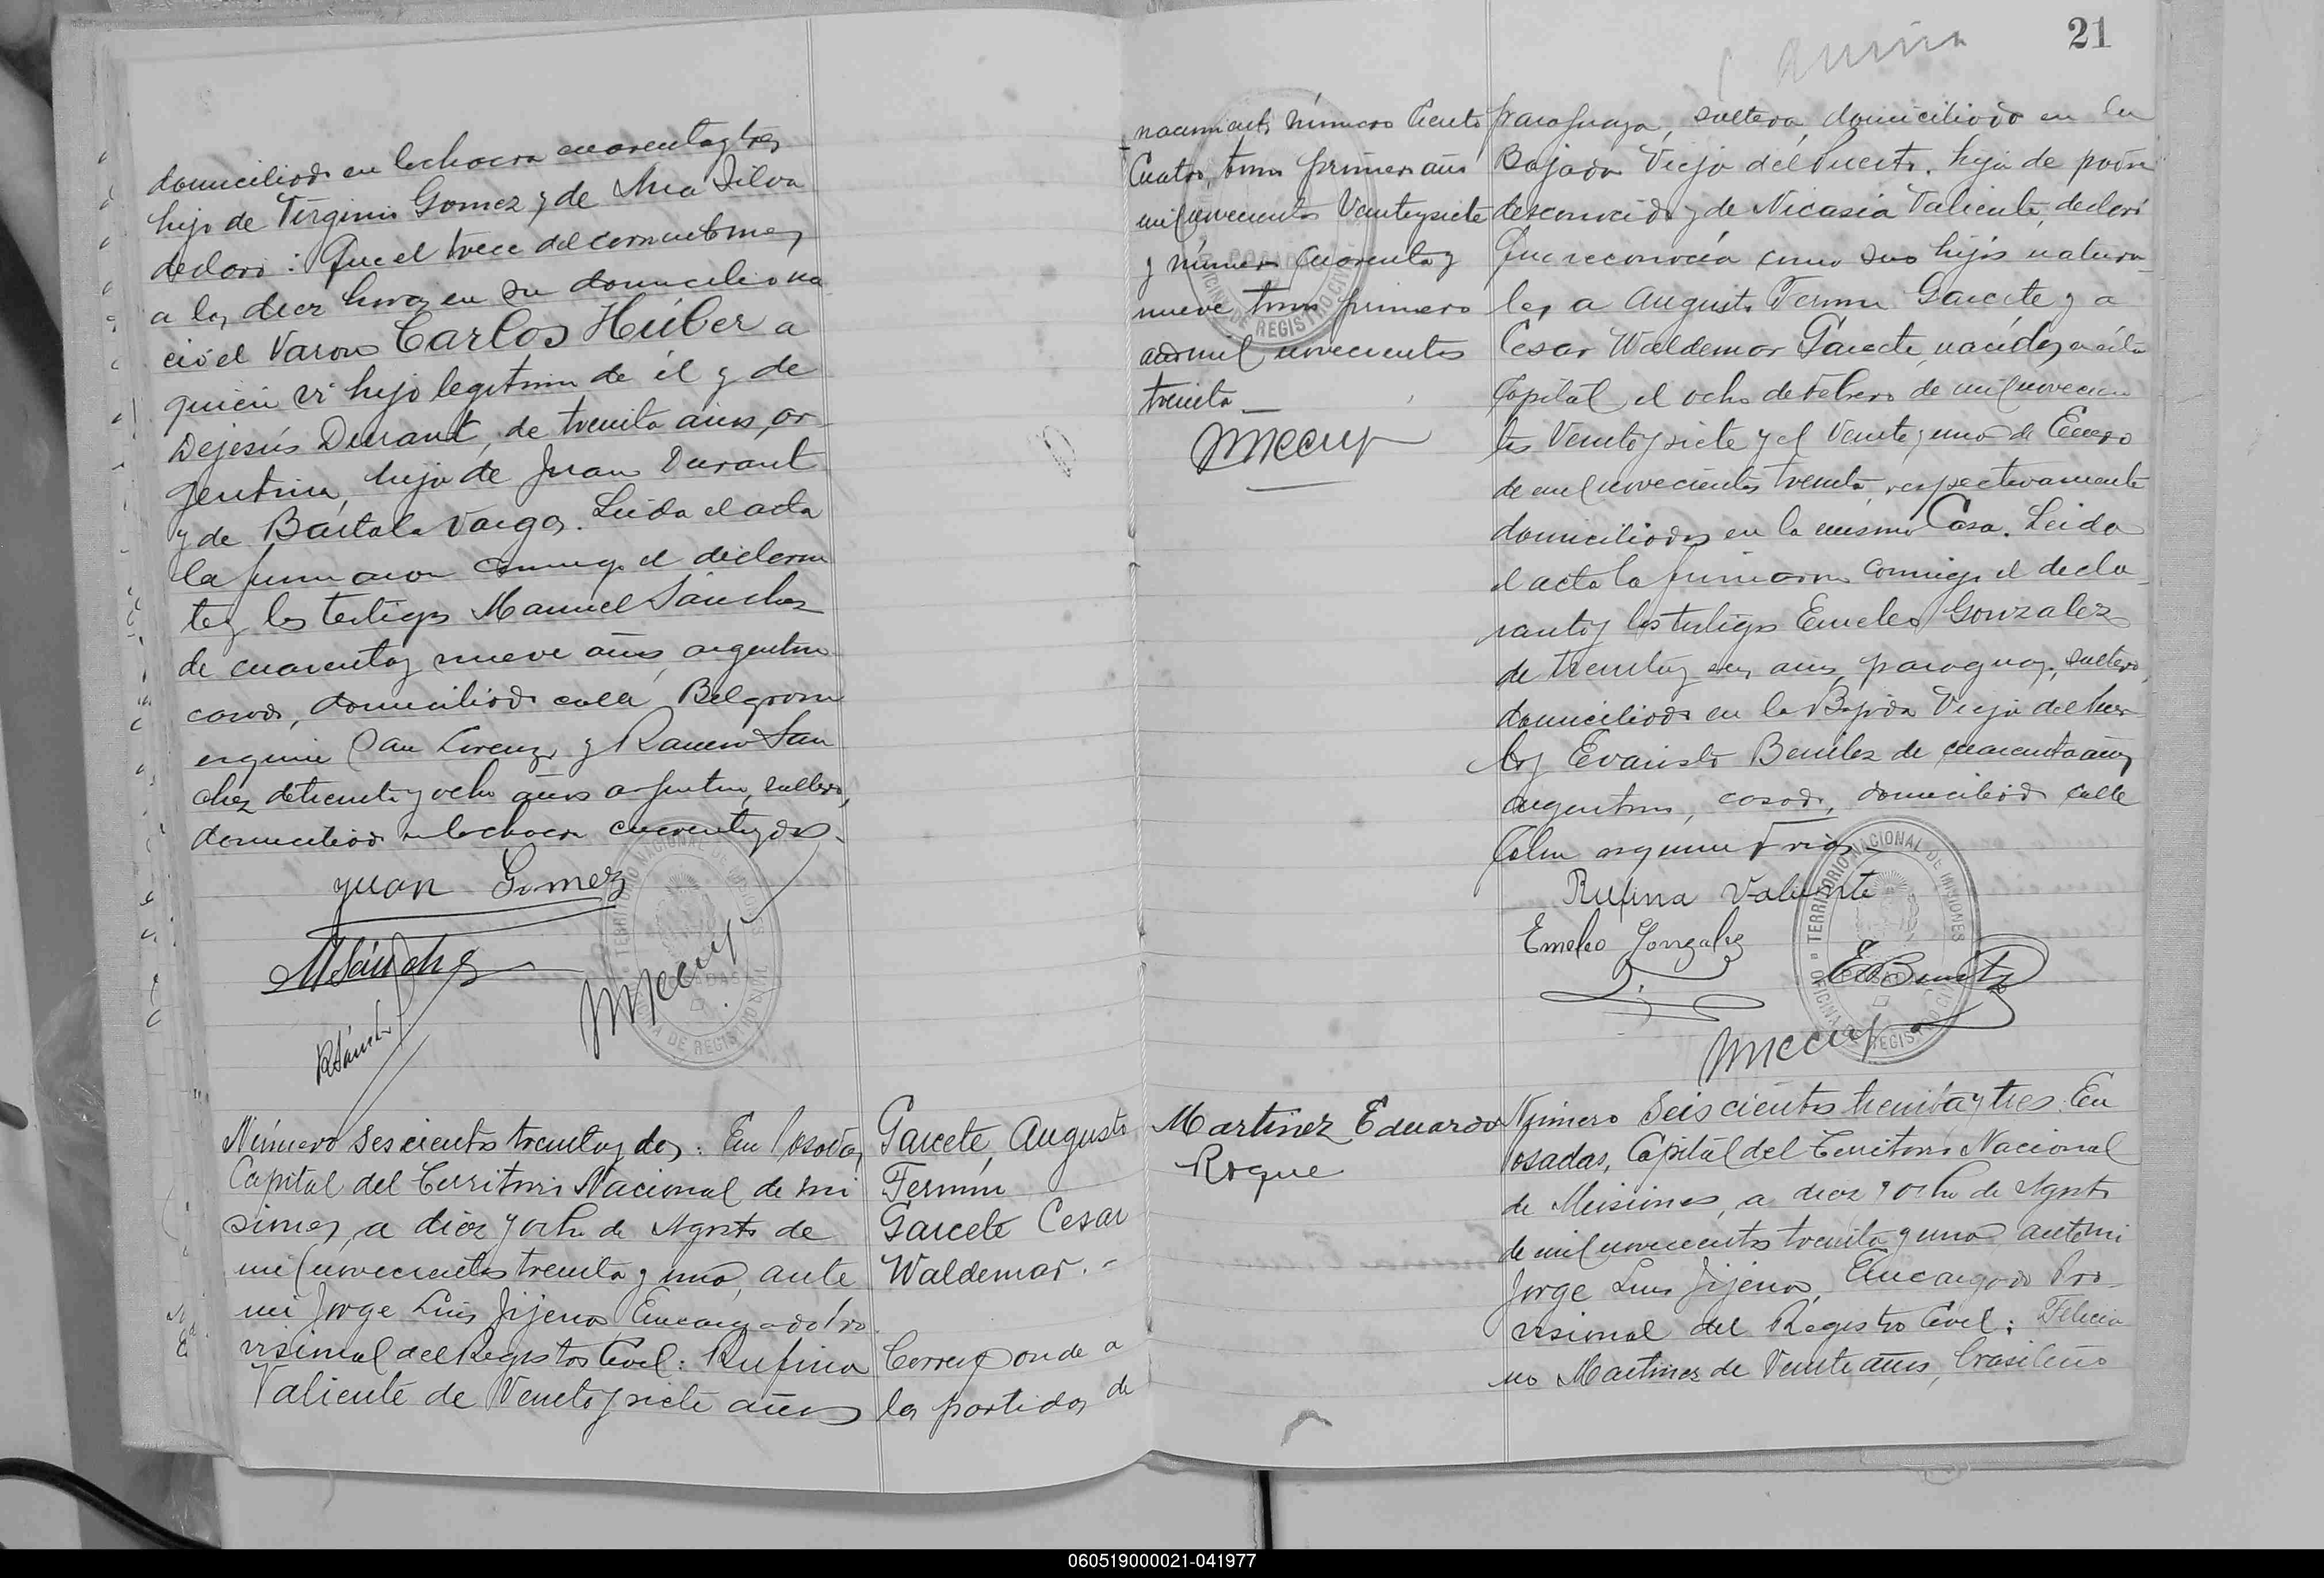 domiciliado en la chacra cuarenta y tres
hijo de Virginio Gomez y de Ana Silva
declaró: Que el trece del corriente mes
a las diez horas en su domicilio na
ció el Varon Carlos Húber a
quien vi hijo legitimo de él y de
Dejesús Durant, de treinta años, ar
gentina, hija de Juan Durant
y de Bártola Vargas. Leida el acta
la firmaron conmigo el declaran
te y los testigos Manuel Sánchez
de cuarenta y nueve años, argentino
casado, domiciliado calle Belgrano
esquina San Lorenzo y Ramiro San
chez de treinta y ocho años argentino, soltero,
domiciliado en la chacra cuarenta y dos.
Juan Gomez
MSánchez
RSánchez
TERRITORIO NACIONAL DE MISIONES
POSADAS
OFICINA DE REGISTRO CIVIL
Número sescientos treinta y dos: En Posadas,
Capital del Territorio Nacional de Mi
siones, a diez y ocho de Agosto de
mil novecientos treinta y uno, ante
mi Jorge Luis Jijena Encargado Pro
visional del Registro Civil: Rufina
Valiente de Veinte y siete años
Garcete, Augusto
Fermin
Garcete Cesar
Waldemar.-
Corresponde a
las partidas de
21
nacimiento número Ciento
Cuatro, tomo primero año
mil novecientos Veintysiete
y número Cuarenta y
nueve tomo primero
año mil novecientos
treinta
POSADAS
OFICINA DE REGISTRO CIVIL
paraguaya, soltera, domiciliada en la
Bajada Vieja del Puerto, hija de padre
desconocido y de Nicasia Valiente, declaró
Que reconocía como sus hijos natura
les a Augusto Fermin Garcete y a
Cesar Waldemar Garcete, nacidos en ésta
Capital el ocho de Febrero de mil novecien
tos Veintysiete y el Veinte y uno de Enero
de mil novecientos treinta, respectivamente
domiciliados en la misma Casa. Leida
el acta la firmaron conmigo el decla
rante y los testigos Emelio Gonzalez
de treinta y seis años, paraguayo, soltero,
domiciliado en la Bajada Vieja del Puer
to y Evaristo Benitez de cuarenta años
argentino, casado, domiciliado calle
Colon esquina Frias.
Rufina Valiente
Emelio Gonzalez
EBenitez
TERRITORIO NACIONAL DE MISIONES
POSADAS
OFICINA DE REGISTRO CIVIL
Martinez Eduardo
Roque
Número Seiscientos treinta y tres: En
Posadas, Capital del Territorio Nacional
de Misiones, a diez y ocho de Agosto
de mil novecientos treinta y uno ante mi
Jorge Luis Jijena, Encargado Pro
visional del Registro Civil: Felicia
no Martinez de Veinte años, brasileño
060519000021-041977